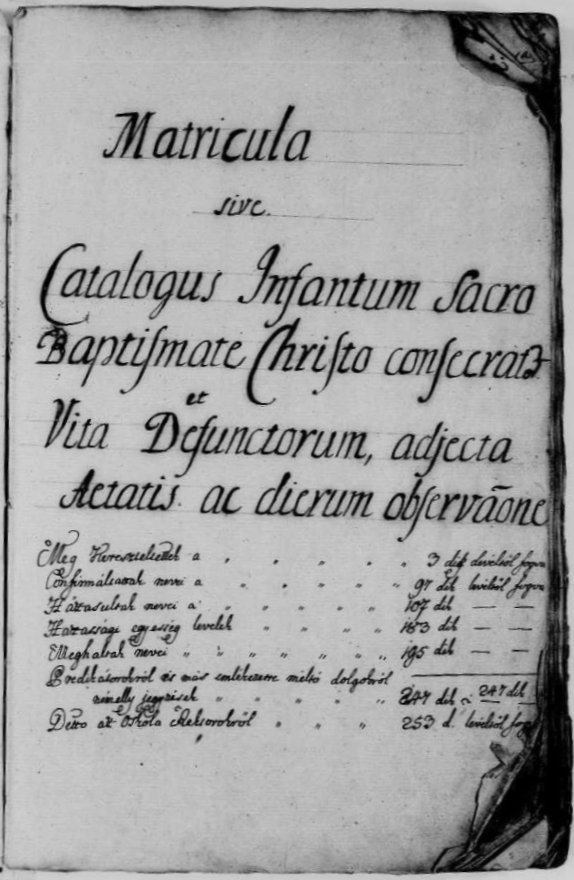 Matricula
sive.
Catalogus Infantum Sacro
Baptiſmate Chriſto conſecrat
et
Vita Defunctorum, adjecta
Aetatis ac dierum obſervãone
Meg Kereszteltettek a „ „ „ „ „ 3 dik levéltöl fogva
Confirmáltattak nevei a „ „ „ „ 97 dik levéltöl fogva
Házasultak nevei a „ „ „ „ „ 107 dik — —
Házassági egyesség levelek „ „ „ „ 183 dik — —
Meghaltak nevei „ „ „ „ „ „ 195 dik — —
Predikátorokról és más emlékezetre méltó dolgokról
némelly jegyzések „ „ „ „ 247 dik 247 dik
Detto az Oskola Rektorokról „ „ „ 253 d. levéltöl